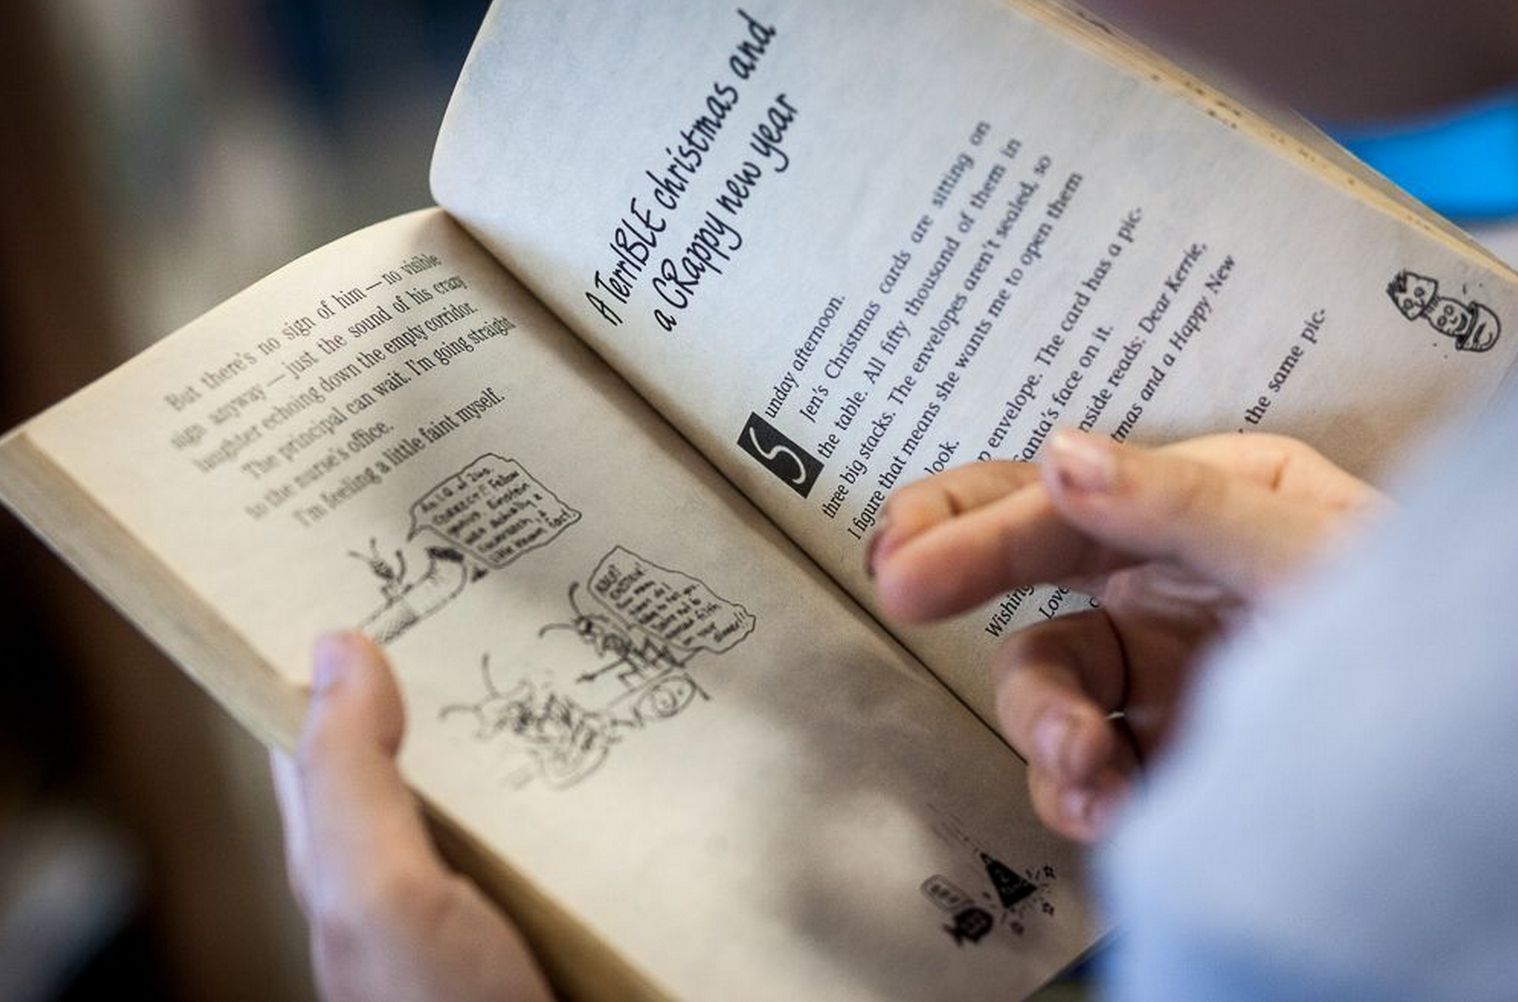 But there's no sign of him — no visible
sign anyway — just the sound of his crazy
laughter echoing down the empty corridor.
The principal can wait. I'm going straight
to the nurse's office.
I'm feeling a little faint myself.
fellow
Einstein
actually a
little known fact!
A TerrIBLE christmas and
a CRappy new year
Sunday afternoon.
Jen's Christmas cards are sitting on
the table. All fifty thousand of them in
three big stacks. The envelopes aren't sealed, so
I figure that means she wants me to open them
look.
envelope. The card has a pic-
Santa's face on it.
nside reads: Dear Kerrie,
tmas and a Happy New
the same pic-
Wishing
Love